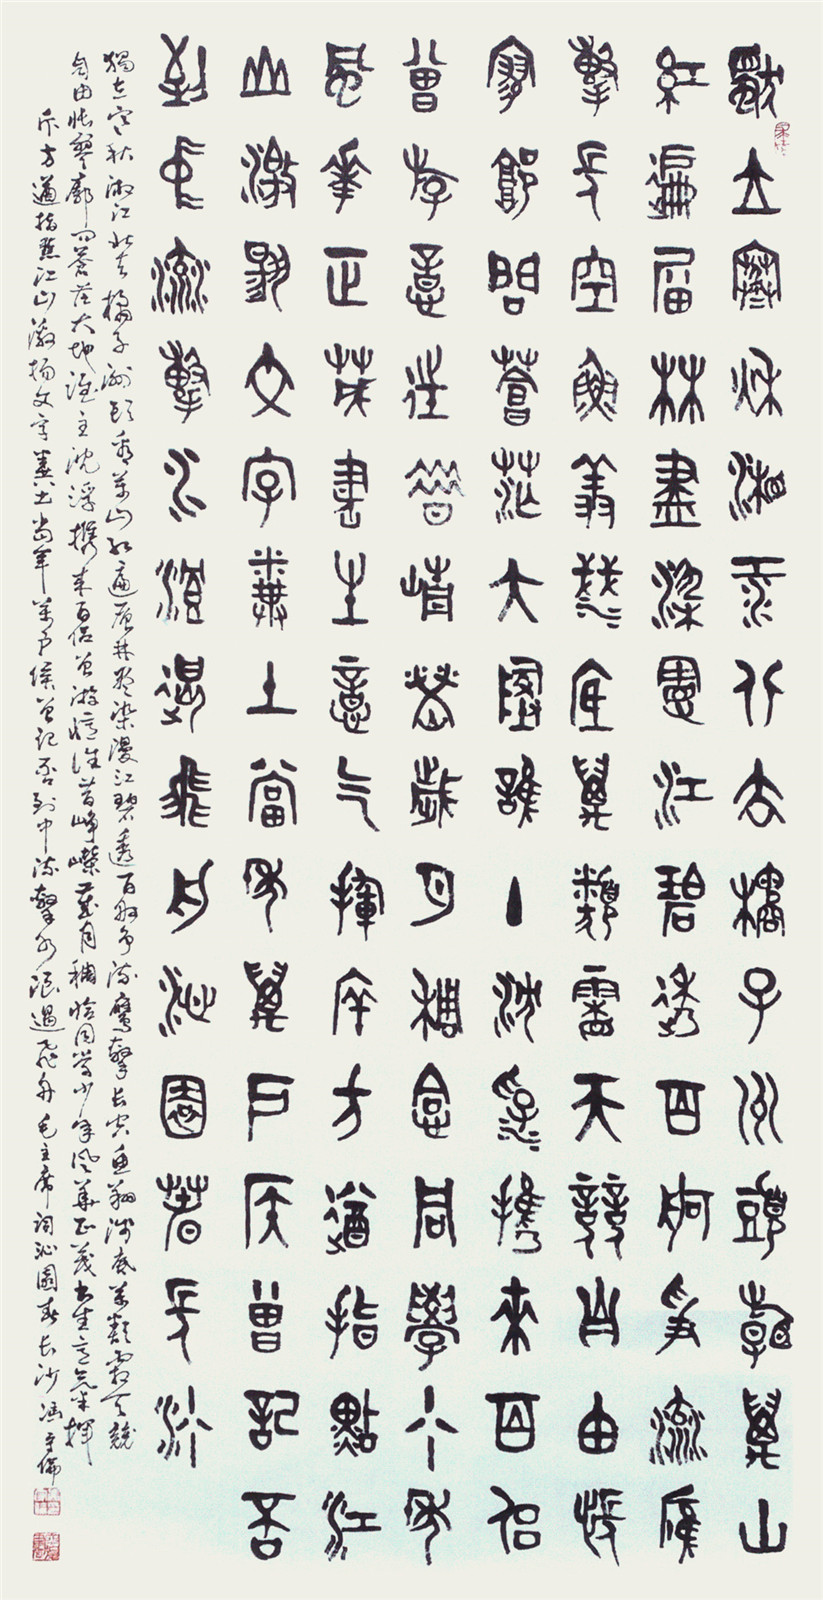 獨立寒秋湘江北去橘子洲頭看萬山
紅遍層林盡染漫江碧透百舸爭流鷹
擊長空魚翔淺底萬類霜天競自由悵
寥廓問蒼茫大地誰主沉浮攜來百侶
曾游憶往昔崢嶸歲月稠恰同學少年
風華正茂書生意氣揮斥方遒指點江
山激揚文字糞土當年萬戶侯曾記否
到中流擊水浪遏飛舟沁園春長沙
獨立寒秋湘江北去橘子洲頭看萬山紅遍層林盡染漫江碧透百舸爭流鷹擊長空魚翔淺底萬類霜天競
自由悵寥廓問蒼茫大地誰主沉浮攜來百侶曾游憶往昔崢嶸歲月稠恰同學少年風華正茂書生意氣揮
斥方遒指點江山激揚文字糞土當年萬戶侯曾記否到中流擊水浪遏飛舟毛主席詞沁園春長沙馮